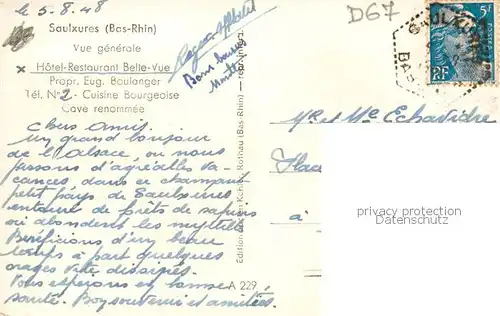 le 5.8.48
D67
Saulxures (Bas-Rhin)
Vue générale
x Hôtel-Restaurant Belle-Vue
Propr. Eug. Boulanger
Tél. N°2 - Cuisine Bourgeoise
Cave renommée
Chers amis,
Un grand bonjour
de l'Alsace, où nous
passons d'agréables va-
cances, dans ce charmant
petit pays de Saulxures
entouré de forêts de sapins
où abondent les myrtilles
Bénéficions d'un beau
temps à part quelques
orages vite dissipés.
Vous espérons en bonne
santé. Bon souvenir et amitiés.
Bons baisers
Edition Kohler, Rothau (Bas-Rhin) —
A 229
5F
RF
Mr et Me Echavidre
Place
à
privacy protection
Datenschutz